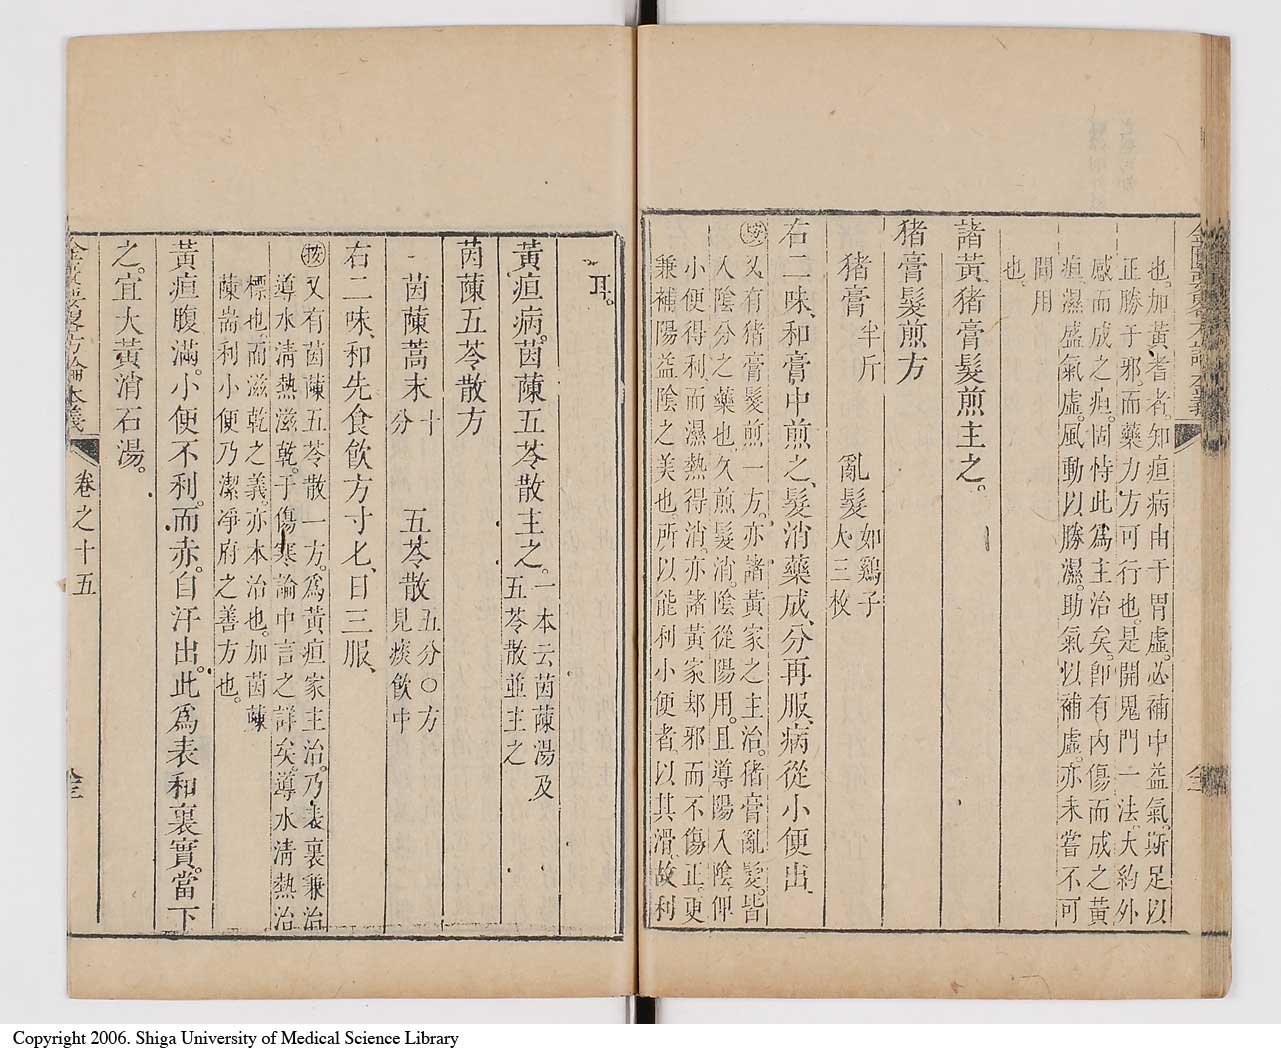 也。加黃耆者。知疸病由于胃虛。必補中益氣。斯足以
正勝于邪。而藥力方可行也。是開鬼門一法。大約外
感而成之疸。固恃此爲主治矣。卽有內傷而成之黃
疸。濕盛氣虛。風動以勝濕。助氣以補虛。亦未嘗不可
間用
也。
諸黃。猪膏髮煎主之。
猪膏髮煎方
猪膏 半斤 亂髮 如鷄子大三枚
右二味、和膏中煎之、髮消藥成、分再服、病從小便出、
按又有猪膏髮煎一方。亦諸黃家之主治。猪膏亂髮。皆
入陰分之藥也。久煎髮消。陰從陽用。且導陽入陰。俾
小便得利。而濕熱得消。亦諸黃家却邪而不傷正。更
兼補陽益陰之美也所以能利小便者、以其滑、故利
耳。
黃疸病。茵蔯五苓散主之。一本云茵蔯湯及五苓散並主之
茵蔯五苓散方
茵蔯蒿末 十分 五苓散 五分〇方見痰飲中
右二味、和先食飲方寸匕、日三服、
按又有茵蔯五苓散一方。爲黃疸家主治。乃表裏兼治
導水淸熱滋乾。于傷寒論中言之詳矣。導水淸熱治
標也而滋乾之義亦本治也。加茵蔯
蔯耑利小便乃潔淨府之善方也。
黃疸腹滿。小便不利。而赤。自汗出。此爲表和裏實。當下
之。宜大黃消石湯。
卷之十五
Copyright 2006. Shiga University of Medical Science Library